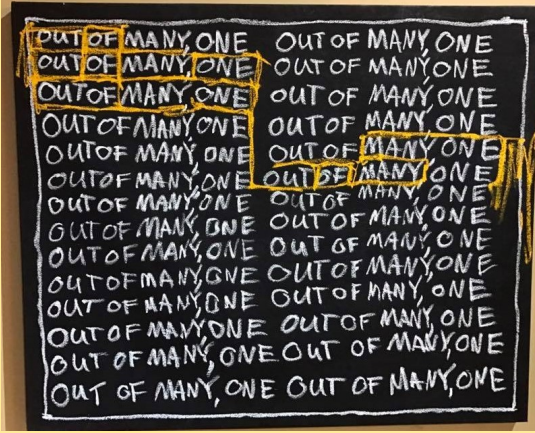 OUT OF MANY, ONE OUT OF MANY, ONE
OUT OF MANY, ONE OUT OF MANY, ONE
OUT OF MANY, ONE OUT OF MANY, ONE
OUT OF MANY, ONE OUT OF MANY, ONE
OUT OF MANY, ONE OUT OF MANY, ONE
OUT OF MANY, ONE OUT OF MANY, ONE
OUT OF MANY, ONE OUT OF MANY, ONE
OUT OF MANY, ONE OUT OF MANY, ONE
OUT OF MANY, ONE OUT OF MANY, ONE
OUT OF MANY, ONE OUT OF MANY, ONE
OUT OF MANY, ONE OUT OF MANY, ONE
OUT OF MANY, ONE OUT OF MANY, ONE
OUT OF MANY, ONE OUT OF MANY, ONE
OUT OF MANY, ONE OUT OF MANY, ONE